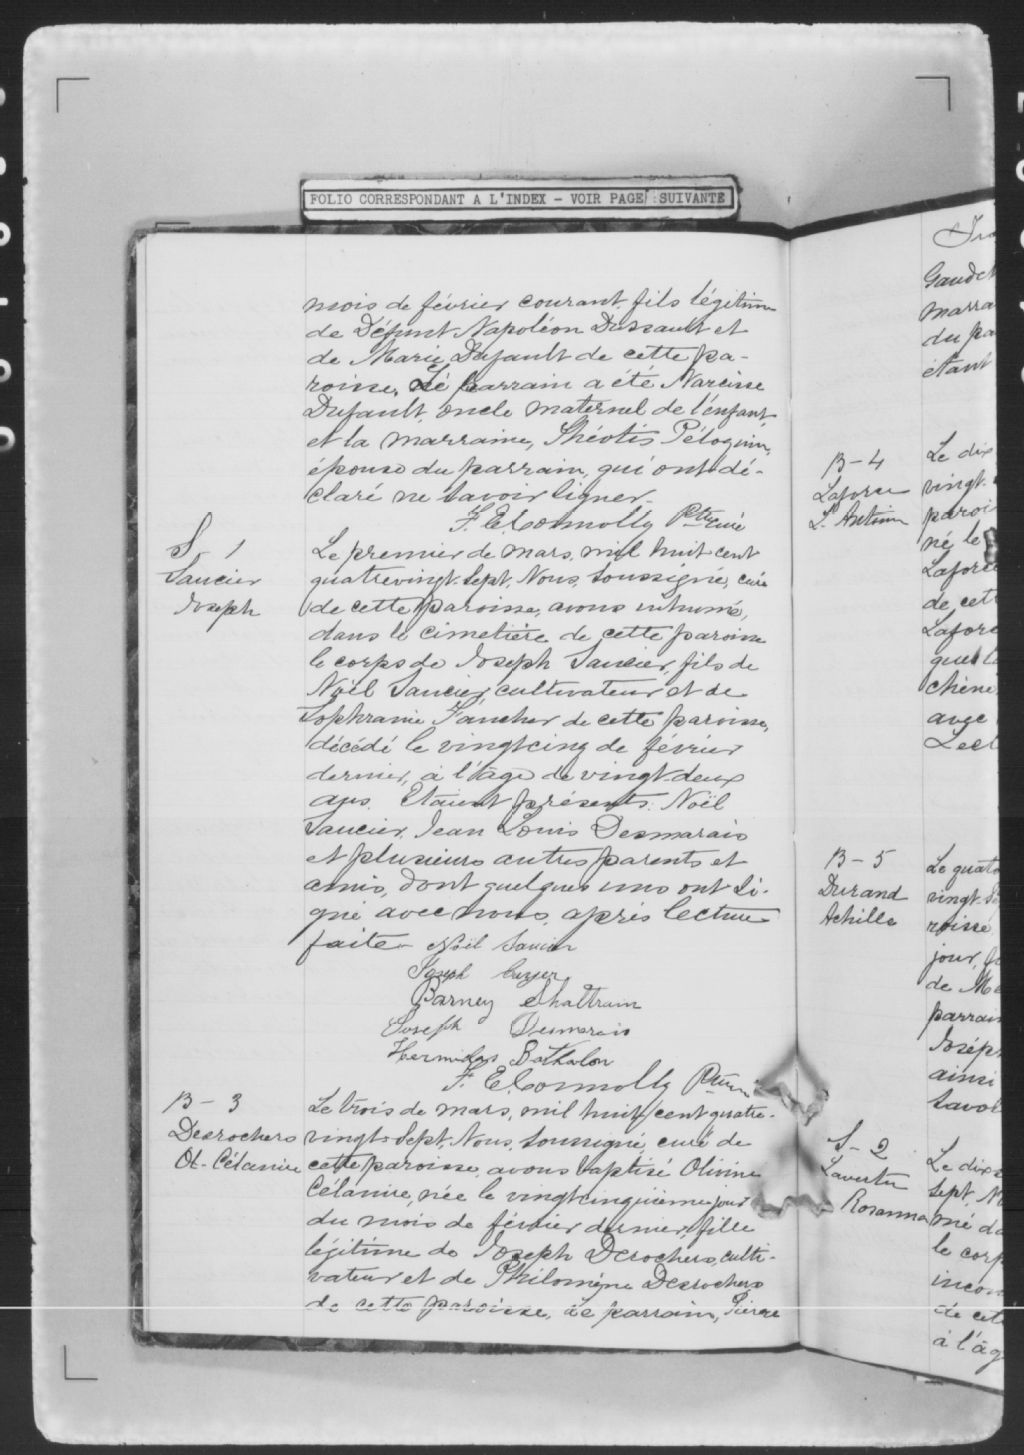 FOLIO CORRESPONDANT A L'INDEX - VOIR PAGE SUIVANTE
mois de février courant fils légitime
de Défunt Napoléon Dussault et
de Marie Dufault de cette pa-
roisse. Le parrain a été Narcisse
Dufault, oncle maternel de l'enfant
et la marraine, Théotis Péloquin,
épouse du parrain, qui ont dé-
claré ne savoir signer.
F. E. Connolly Ptre curé
S 1
Saucier
Joseph
Le premier de mars, mil huit cent
quatrevingt-sept, Nous, soussigné, curé
de cette paroisse, avons inhumé,
dans le cimetière de cette paroisse
le corps de Joseph Saucier, fils de
Noël Saucier, cultivateur et de
Sophranie Faucher de cette paroisse,
décédé le vingtcinq de février
dernier, à l'âge de vingt-deux
ans. Etaient présents: Noël
Saucier, Jean Louis Desmarais
et plusieurs autres parents et
amis, dont quelques uns ont si-
gné avec nous, après lecture
faite Noël Saucier
Joseph
Barney
Joseph Desmarais
Hermidas
F. E. Connolly Ptre
B - 3
Desrochers
Ol. Célanire
Le trois de mars, mil huit cent quatre-
vingt-sept, Nous, soussigné, curé de
cette paroisse, avons baptisé Olivine
Célanire, née le vingtcinquième jour
du mois de février dernier, fille
légitime de Joseph Derochers, culti-
vateur et de Philomène Desrochers
de cette paroisse, Le parrain, Pierre
Gaudet
marra
du pa
étant
B - 4
Laforce
L. Antime
Le dix
vingt-
paroi
né, le
Laforce
de cett
Laforc
chène
avec
B - 5
Durand
Achille
Le quato
vingt-s
roisse
jour,
de Ma
parrain
Joseph
ainsi
savoi
S - 2
Rosanna
Le dix
sept, N
mé da
le corp
incon
de cet
à l'âg